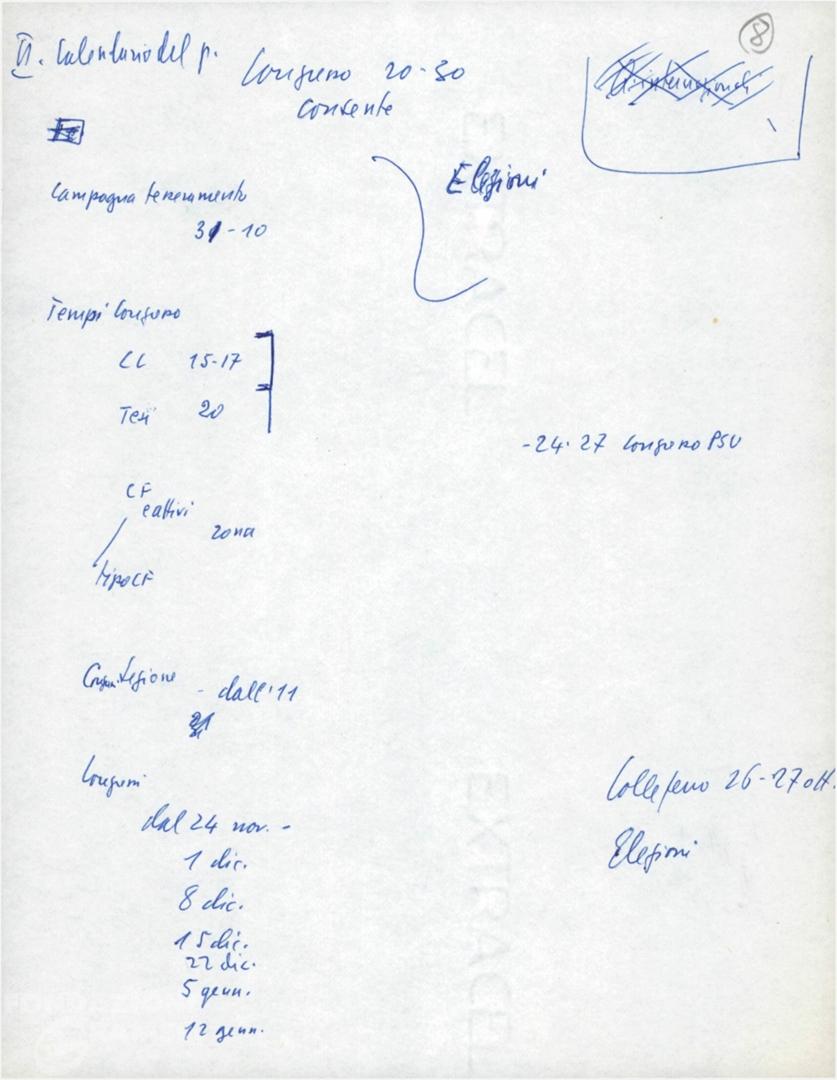 8
II. Calendario del p.
Congresso 20-30
consente
Elezioni
Campagna tesseramento
31-10
Tempi Congresso
CC 15-17
Tesi 20
-24-27 Congresso PSU
CF
e attivi
zona
tipo CF
- dall'11
Congressi
dal 24 nov. -
1 dic.
8 dic.
15 dic.
22 dic.
5 genn.
12 genn.
Colleferro 26-27 ott.
Elezioni
EXTRACEL